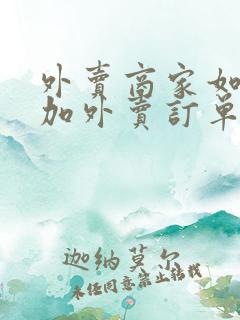 外賣商家如
加外賣訂單
迦納莫尔
未经同意禁止转载